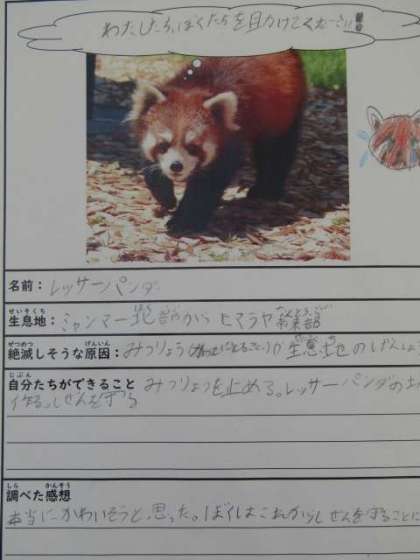 わたしたち、ぼくたちを助けてください!!
名前：レッサーパンダ
せいそくち
生息地：ミャンマー北部から ヒマラヤ
ぜつめつ げんいん
絶滅しそうな原因：みつりょう が生息地のげんしょう
じぶん
自分たちができること みつりょうを止める。レッサーパンダの
作る。しぜんを守る
しら かんそう
調べた感想
本当にかわいそうと思った。ぼくはこれからしぜんを守ることに